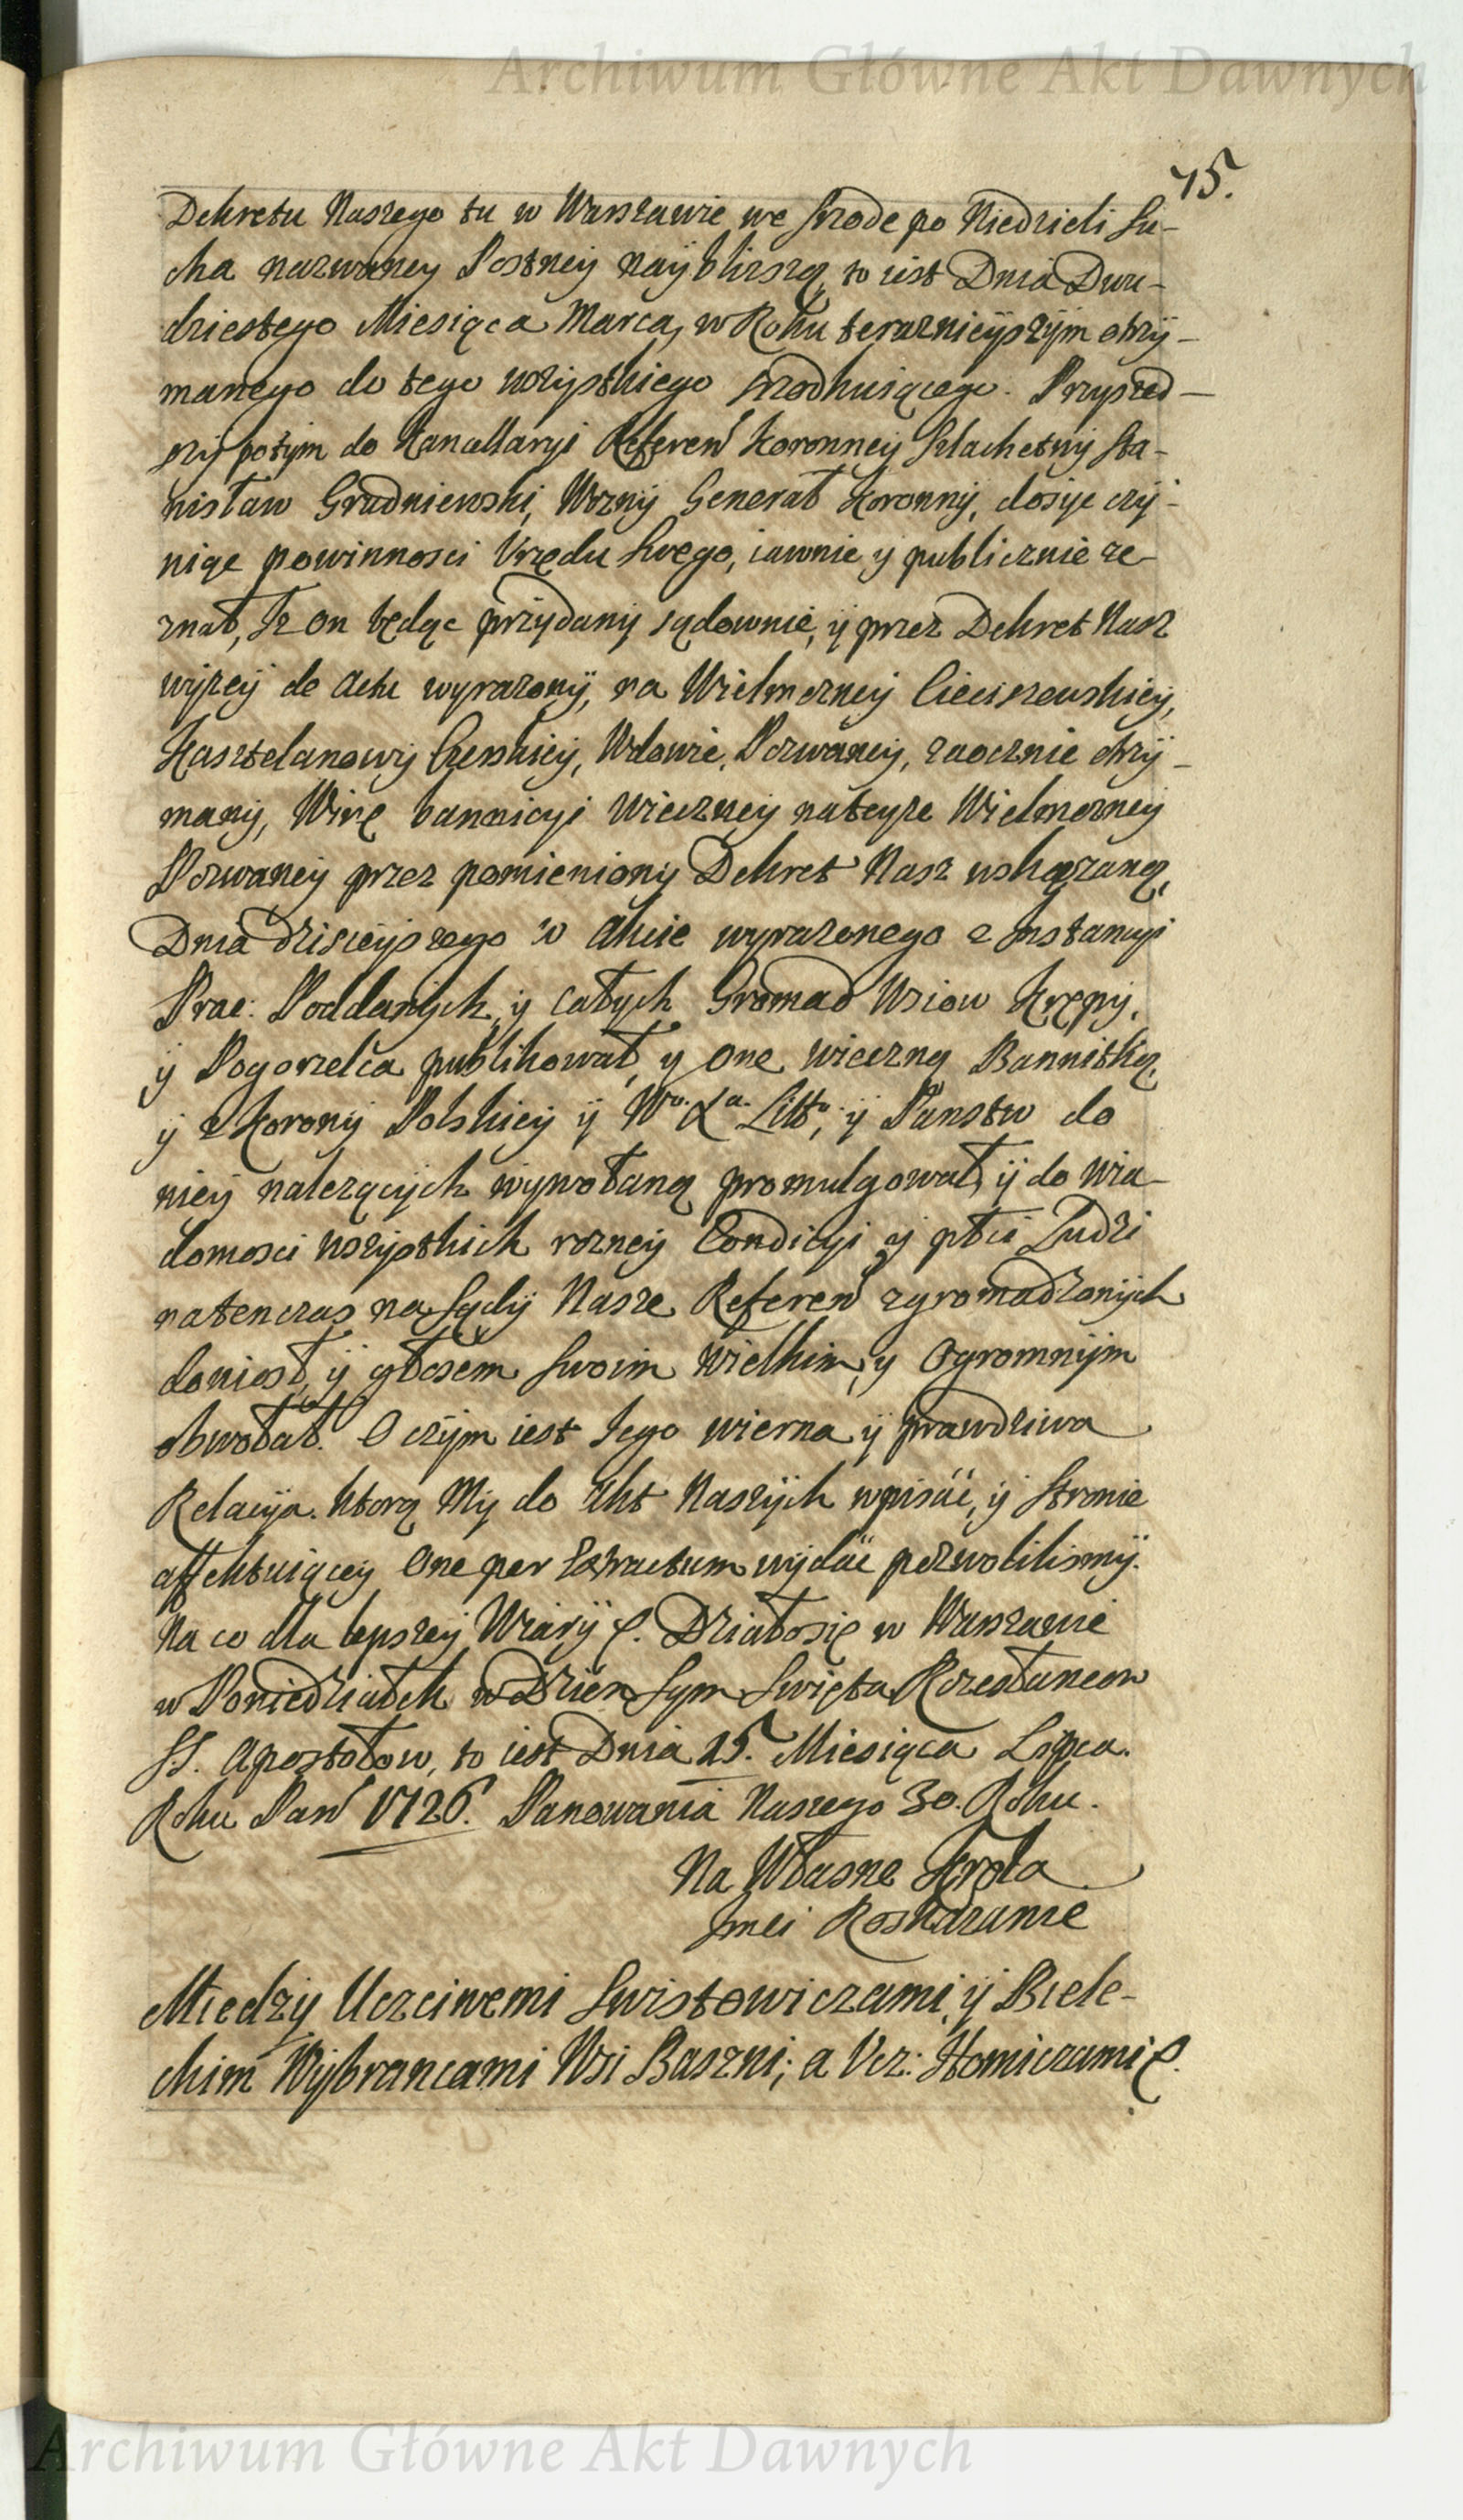 Archiwum Główne Akt Dawnych
75.
Dekretu Naszego tu w Warszawie we Srzode po Niedzieli Su-
cha nazwaney Postney nayblizszą, to iest Dnia Dwu-
dziestego Miesiąca Marca, w Roku teraznieyszym otrzy-
manego do tego wszystkiego srzodkuiącego. Przyszed-
szy potym do Kancellaryi Referen Koronney Szlachetny Sta-
nisław Grudniewski, Wozny Generał Koronny, dosyc czy-
niąc powinnosci Vrzędu Swego, iawnie y publicznie ze-
znał, Iz on będąc przydany sądownie, y przez Dekret Nasz
wyzey de Actu wyrazony, na Wielmozney Cieciszewskiey,
Kasztelanowy Czerskiey, Wdowie, Pozwaney, zaocznie otrzy-
many, Winę bannicyi wieczney na teyze Wielmozney
Pozwaney przez pomieniony Dekret Nasz wskazaną,
Dnia dzisieyszego w akcie wyrazonego z Instancyi
Prac: Poddanych, y całych Gromad Wsiow Krępy,
y Pogorzelca publikował, y one wieczną Bannitką,
y z Korony Polskiey y Wo. Xa. Litto, y Panstw do
niey nalezących wywołaną promulgował, y do wia-
domosci wszystkich rozney Condicyi y płci Ludzi
natenczas na Sądy Nasze Referen zgromadzonych
doniosł, y głosem swoim wielkim, y ogromnym
obwołał. O czym iest Iego wierna y prawdziwa
Relacya. Ktorą My do Akt Naszych wpisać, y Stronie
affektuiącey One per Extractum wydać pozwolilismy.
Na co dla lepszey Wiary &. Działo się w Warszawie
w Poniedziałek w Dzien Sym Swięta Rozesłancow
SS. Apostołow, to iest Dnia 15. Miesiąca Lipca.
Roku Pan 1726. Panowania Naszego 30. Roku.
Na Własne Krola
Jmci Roskazanie
Miedzy Uczciwemi Swistowiczami, y Biele-
ckim Wybrancami Wsi Baszni; a Vcz: Homiczami &.
Archiwum Główne Akt Dawnych